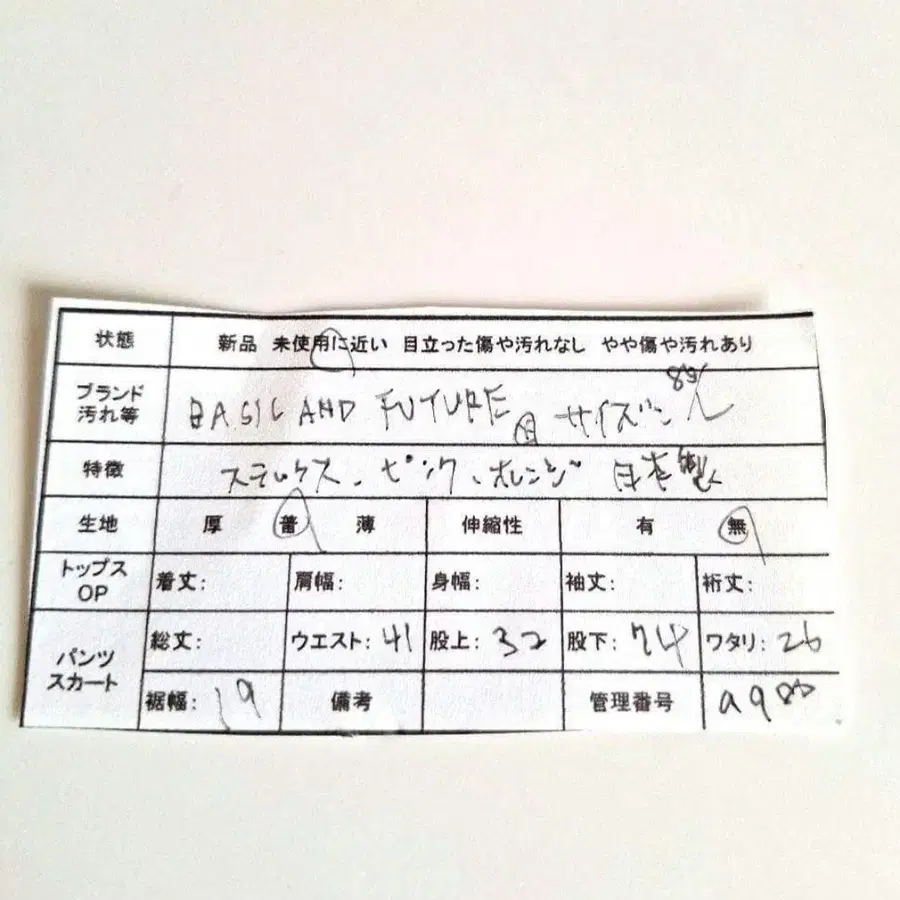 状態 新品 未使用に近い 目立った傷や汚れなし やや傷や汚れあり
ブランド 汚れ等 BASIC AND FUTURE サイズ:
特徴 スラックス、ピンク、オレンジ 日本製
生地 厚 普 薄 伸縮性 有 無
トップス OP 着丈: 肩幅: 身幅: 袖丈: 裄丈:
パンツ スカート 総丈: ウエスト: 41 股上: 32 股下: 74 ワタリ: 26
裾幅: 19 備考 管理番号